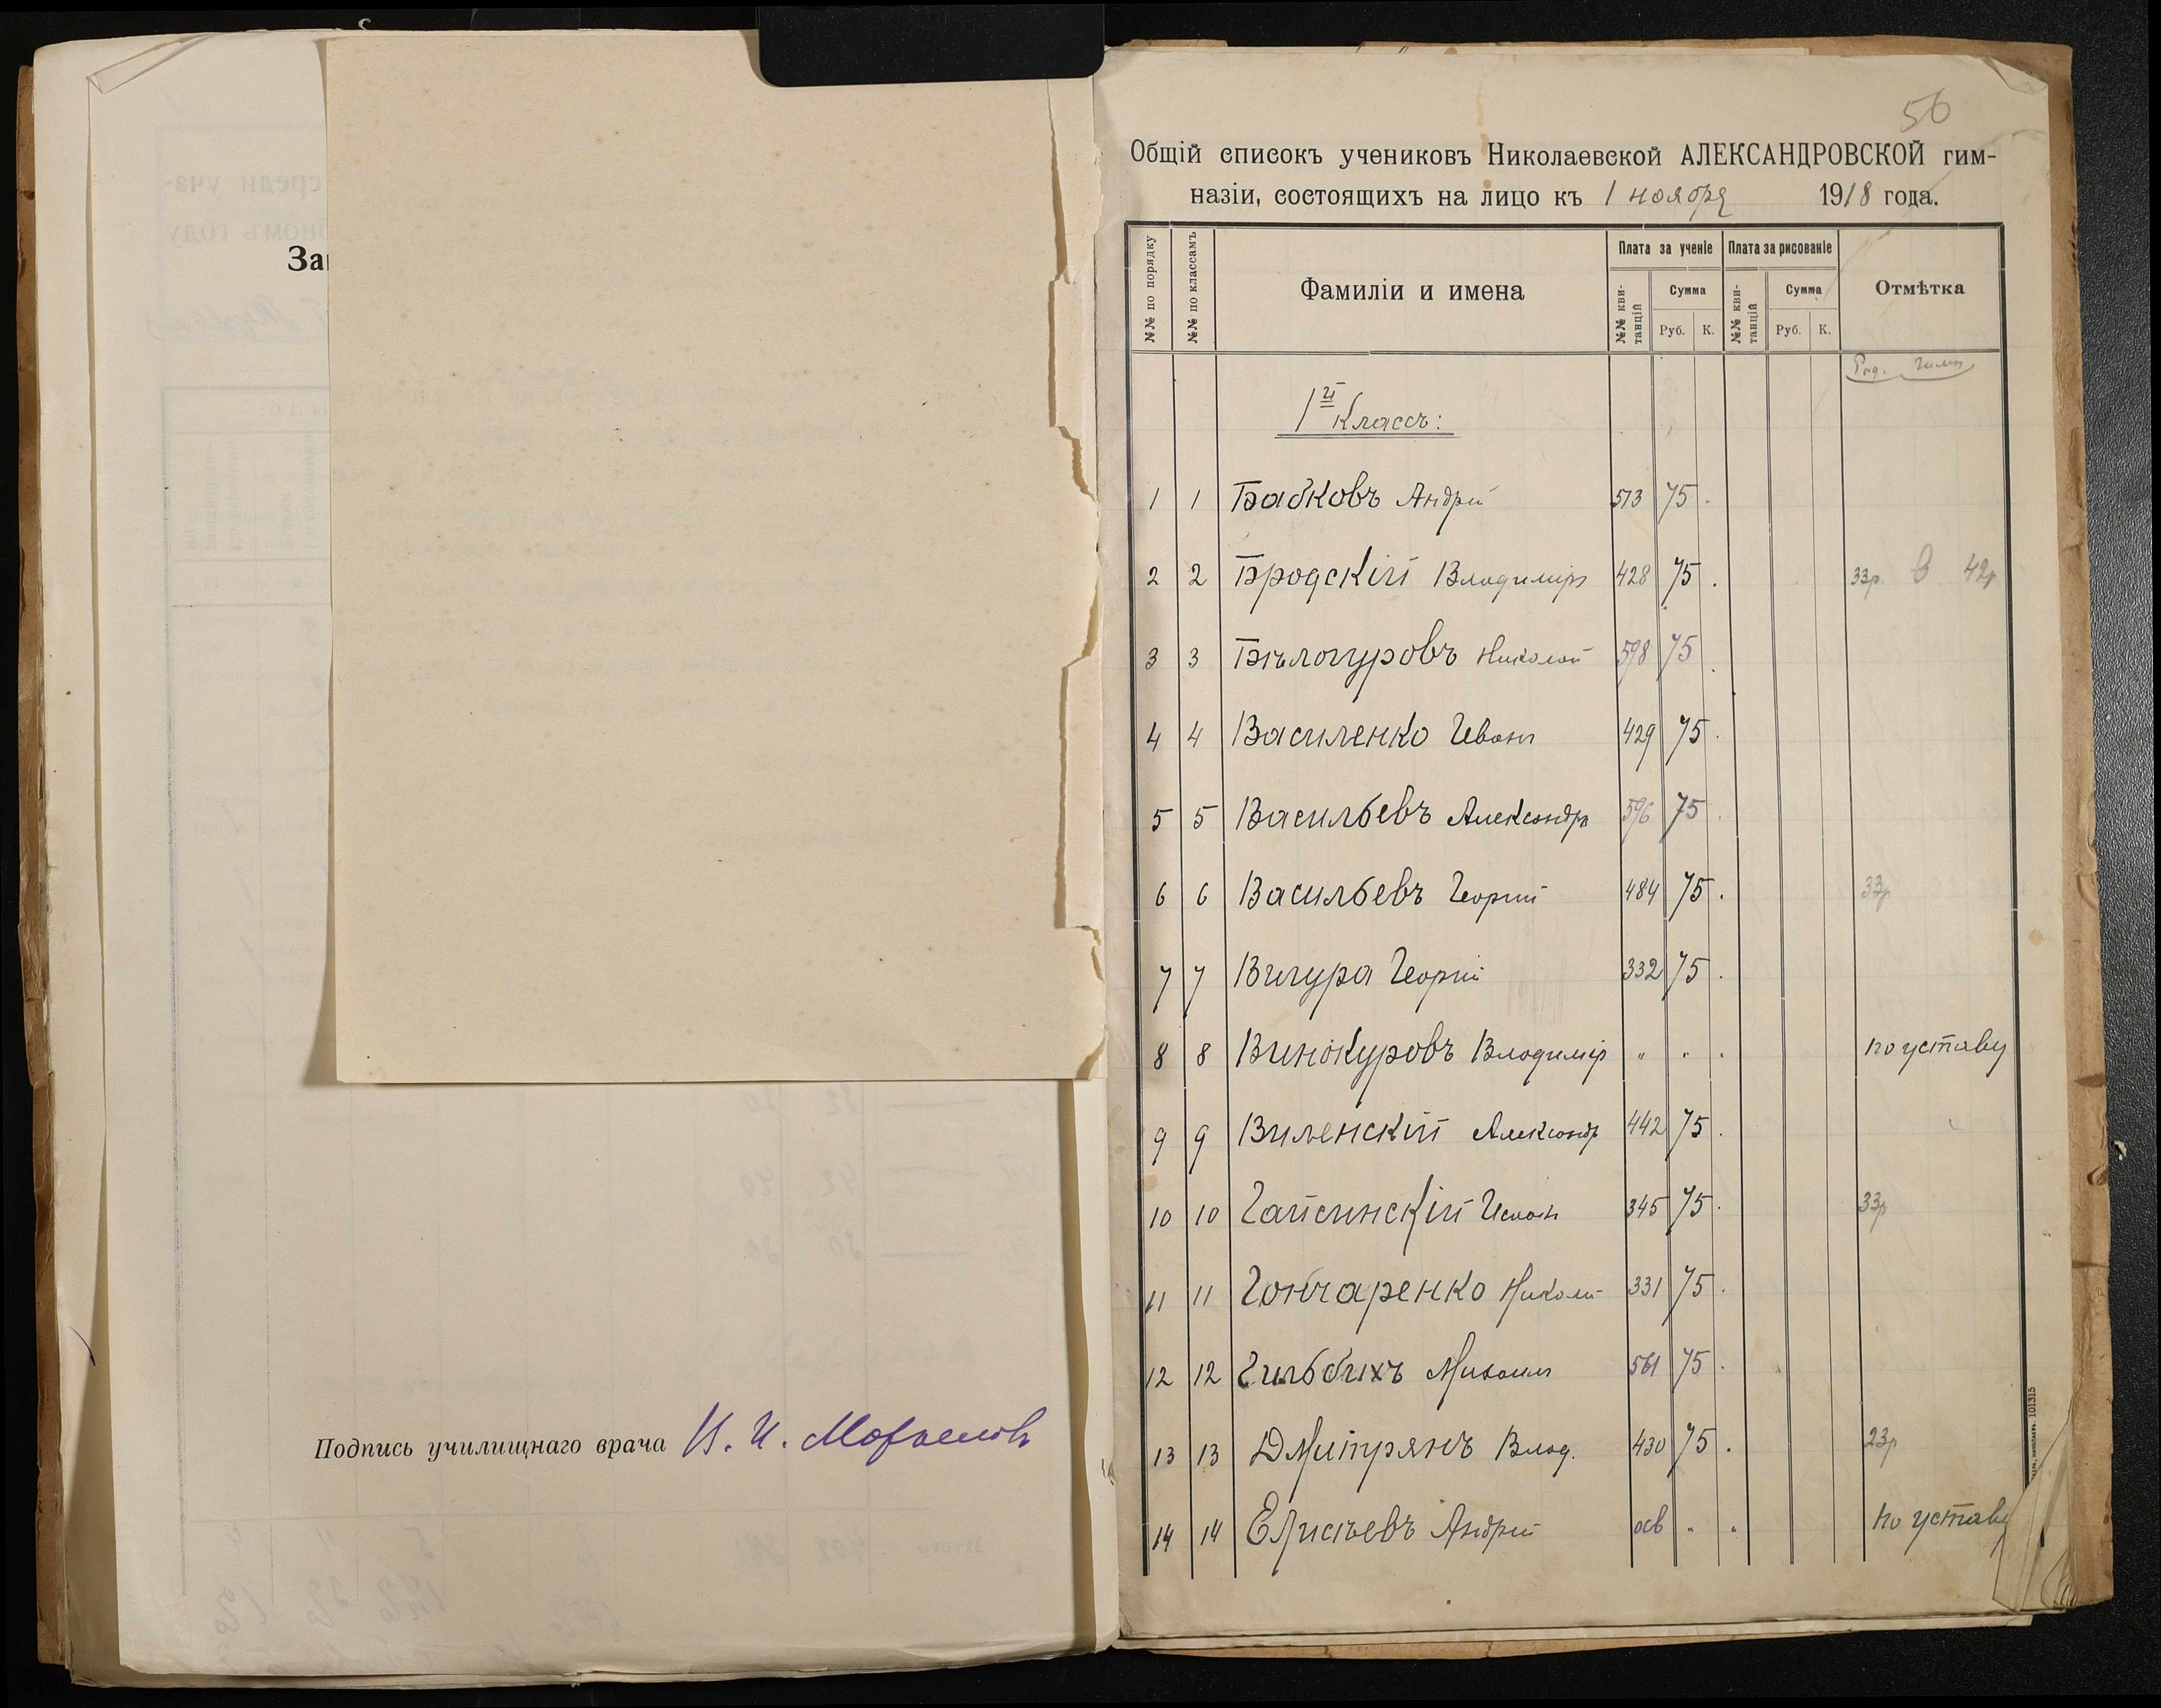 За
Подпись училищнаго врача
56
Общій списокъ учениковъ Николаевской АЛЕКСАНДРОВСКОЙ гим-
назіи, состоящихъ на лицо къ 1 ноября 1918 года.
№№ по порядку
№№ по классамъ
Фамиліи и имена
Плата за ученіе
Плата за рисованіе
№№ кви-
танцій
Сумма
Руб. К.
№№ кви-
танцій
Сумма
Руб. К.
Отмѣтка
1й Классъ:
1 1 Бабковъ Андрій 513 75 .
2 2 Бродскій Владиміръ 428 75 . 33р. в 42р
3 3 Бѣлогуровъ Николай 598 75 .
4 4 Василенко Иванъ 429 75 .
5 5 Васильевъ Александръ 596 75 .
6 6 Васильевъ Георгій 484 75 . 33р
7 7 Вигура Георгій 332 75 .
8 8 Винокуровъ Владимір „ „ . по уставу
9 9 Виленскій Александръ 442 75 .
10 10 Гайсинскій 345 75 . 33р
11 11 Гончаренко Николай 331 75 .
12 12 Гильбихъ Михаилъ 561 75 .
13 13 Дмитрянъ Влад. 430 75 . 23р
14 14 Елисѣевъ Андрій осв „ „ по уставу
101315